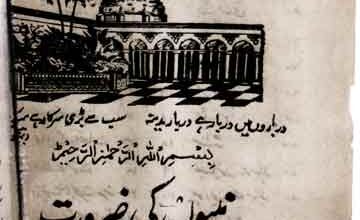 درباروں میں دربار ہے دربار مدینہ سب سے بڑی سرکار ہے
بِسْمِ اللهِ الرَّحْمٰنِ الرَّحِيْمِ
کی ضرورت